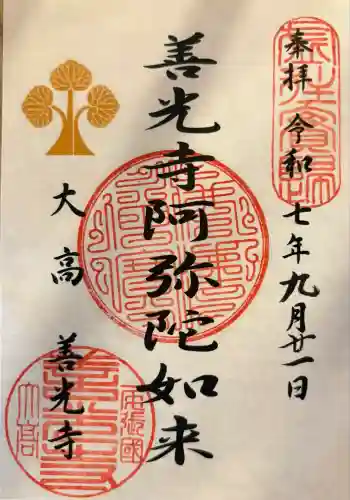 奉拝 令和七年九月廿一日
善光寺阿弥陀如来
大高 善光寺
尾張國
善光寺
大高